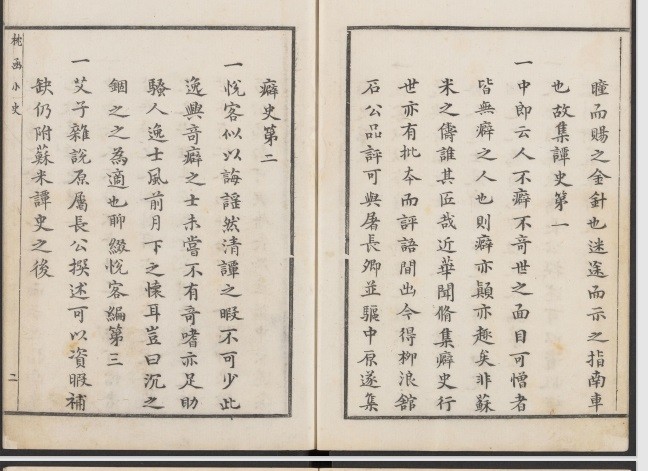 瞳而賜之金針也迷途而示之指南車
也故集譚史第一
一中郎云人不癖不竒世之面目可憎者
皆無癖之人也則癖亦顛亦趣矣非蘇
米之儔誰其匹哉近華聞脩集癖史行
世亦有批本而評語間出今得栁浪舘
石公品評可與屠長卿並驅中原遂集
癖史第二
一悅客似以誨謡然清譚之暇不可少此
逸興竒癖之士未嘗不有竒嗜亦足助
騷人逸士風前月下之懷耳豈曰沉之
錮之之為適也聊綴悅客編第三
一艾子雜說原屬長公撰述可以資暇補
缺仍附蘇米譚史之後
枕函小史
二